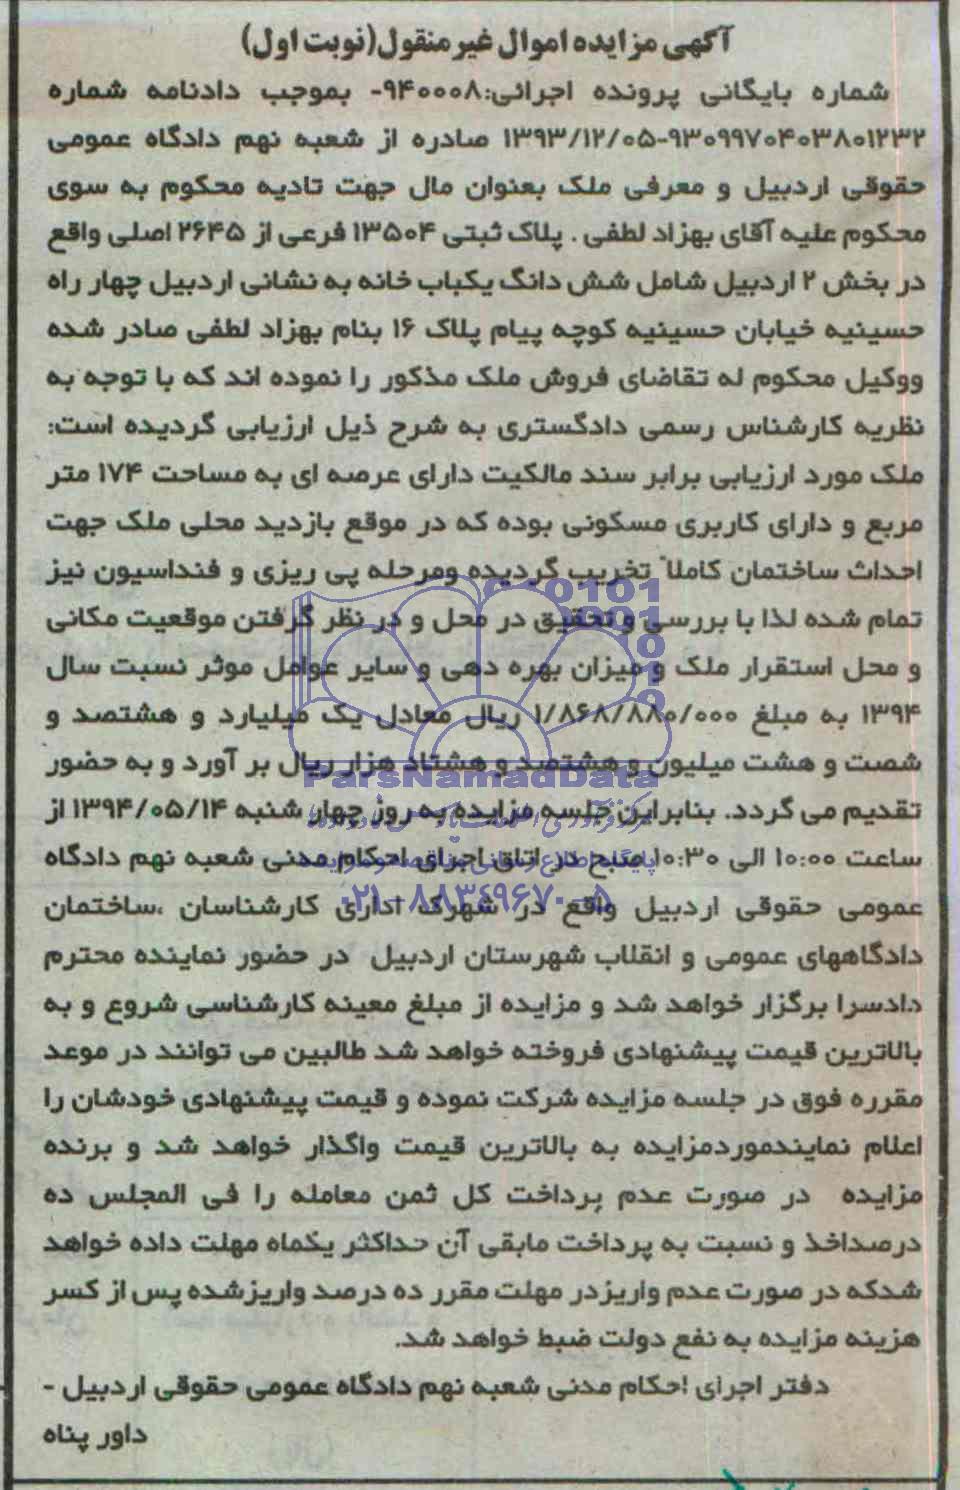 آگهی مزایده اموال غیر منقول(نوبت اول)
شماره بایگانی پرونده اجرائی:۹۴۰۰۰۸- بموجب دادنامه شماره
۹۳۰۹۹۷۰۴۰۳۸۰۱۲۳۲-۱۳۹۳/۱۲/۰۵ صادره از شعبه نهم دادگاه عمومی
حقوقی اردبیل و معرفی ملک بعنوان مال جهت تادیه محکوم به سوی
محکوم علیه آقای بهزاد لطفی . پلاک ثبتی ۱۳۵۰۴ فرعی از ۲۶۴۵ اصلی واقع
در بخش ۲ اردبیل شامل شش دانگ یکباب خانه به نشانی اردبیل چهار راه
حسینیه خیابان حسینیه کوچه پیام پلاک ۱۶ بنام بهزاد لطفی صادر شده
ووکیل محکوم له تقاضای فروش ملک مذکور را نموده اند که با توجه به
نظریه کارشناس رسمی دادگستری به شرح ذیل ارزیابی گردیده است:
ملک مورد ارزیابی برابر سند مالکیت دارای عرصه ای به مساحت ۱۷۴ متر
مربع و دارای کاربری مسکونی بوده که در موقع بازدید محلی ملک جهت
احداث ساختمان کاملاً تخریب گردیده ومرحله پی ریزی و فنداسیون نیز
تمام شده لذا با بررسی و تحقیق در محل و در نظر گرفتن موقعیت مکانی
و محل استقرار ملک و میزان بهره دهی و سایر عوامل موثر نسبت سال
۱۳۹۴ به مبلغ ۱/۸۶۸/۸۸۰/۰۰۰ ریال معادل یک میلیارد و هشتصد و
شصت و هشت میلیون و هشتصد و هشتاد هزار ریال بر آورد و به حضور
تقدیم می گردد. بنابراین جلسه مزایده به روز چهار شنبه ۱۳۹۴/۰۵/۱۴ از
ساعت ۱۰:۰۰ الی ۱۰:۳۰ صبح در اتاق اجرای احکام مدنی شعبه نهم دادگاه
عمومی حقوقی اردبیل واقع در شهرک اداری کارشناسان ،ساختمان
دادگاههای عمومی و انقلاب شهرستان اردبیل در حضور نماینده محترم
دادسرا برگزار خواهد شد و مزایده از مبلغ معینه کارشناسی شروع و به
بالاترین قیمت پیشنهادی فروخته خواهد شد طالبین می توانند در موعد
مقرره فوق در جلسه مزایده شرکت نموده و قیمت پیشنهادی خودشان را
اعلام نمایندموردمزایده به بالاترین قیمت واگذار خواهد شد و برنده
مزایده در صورت عدم پرداخت کل ثمن معامله را فی المجلس ده
درصداخذ و نسبت به پرداخت مابقی آن حداکثر یکماه مهلت داده خواهد
شدکه در صورت عدم واریزدر مهلت مقرر ده درصد واریزشده پس از کسر
هزینه مزایده به نفع دولت ضبط خواهد شد.
دفتر اجرای احکام مدنی شعبه نهم دادگاه عمومی حقوقی اردبیل -
داور پناه
ParsNamadData
۰۲۱-۸۸۳۴۹۶۷۰-۵